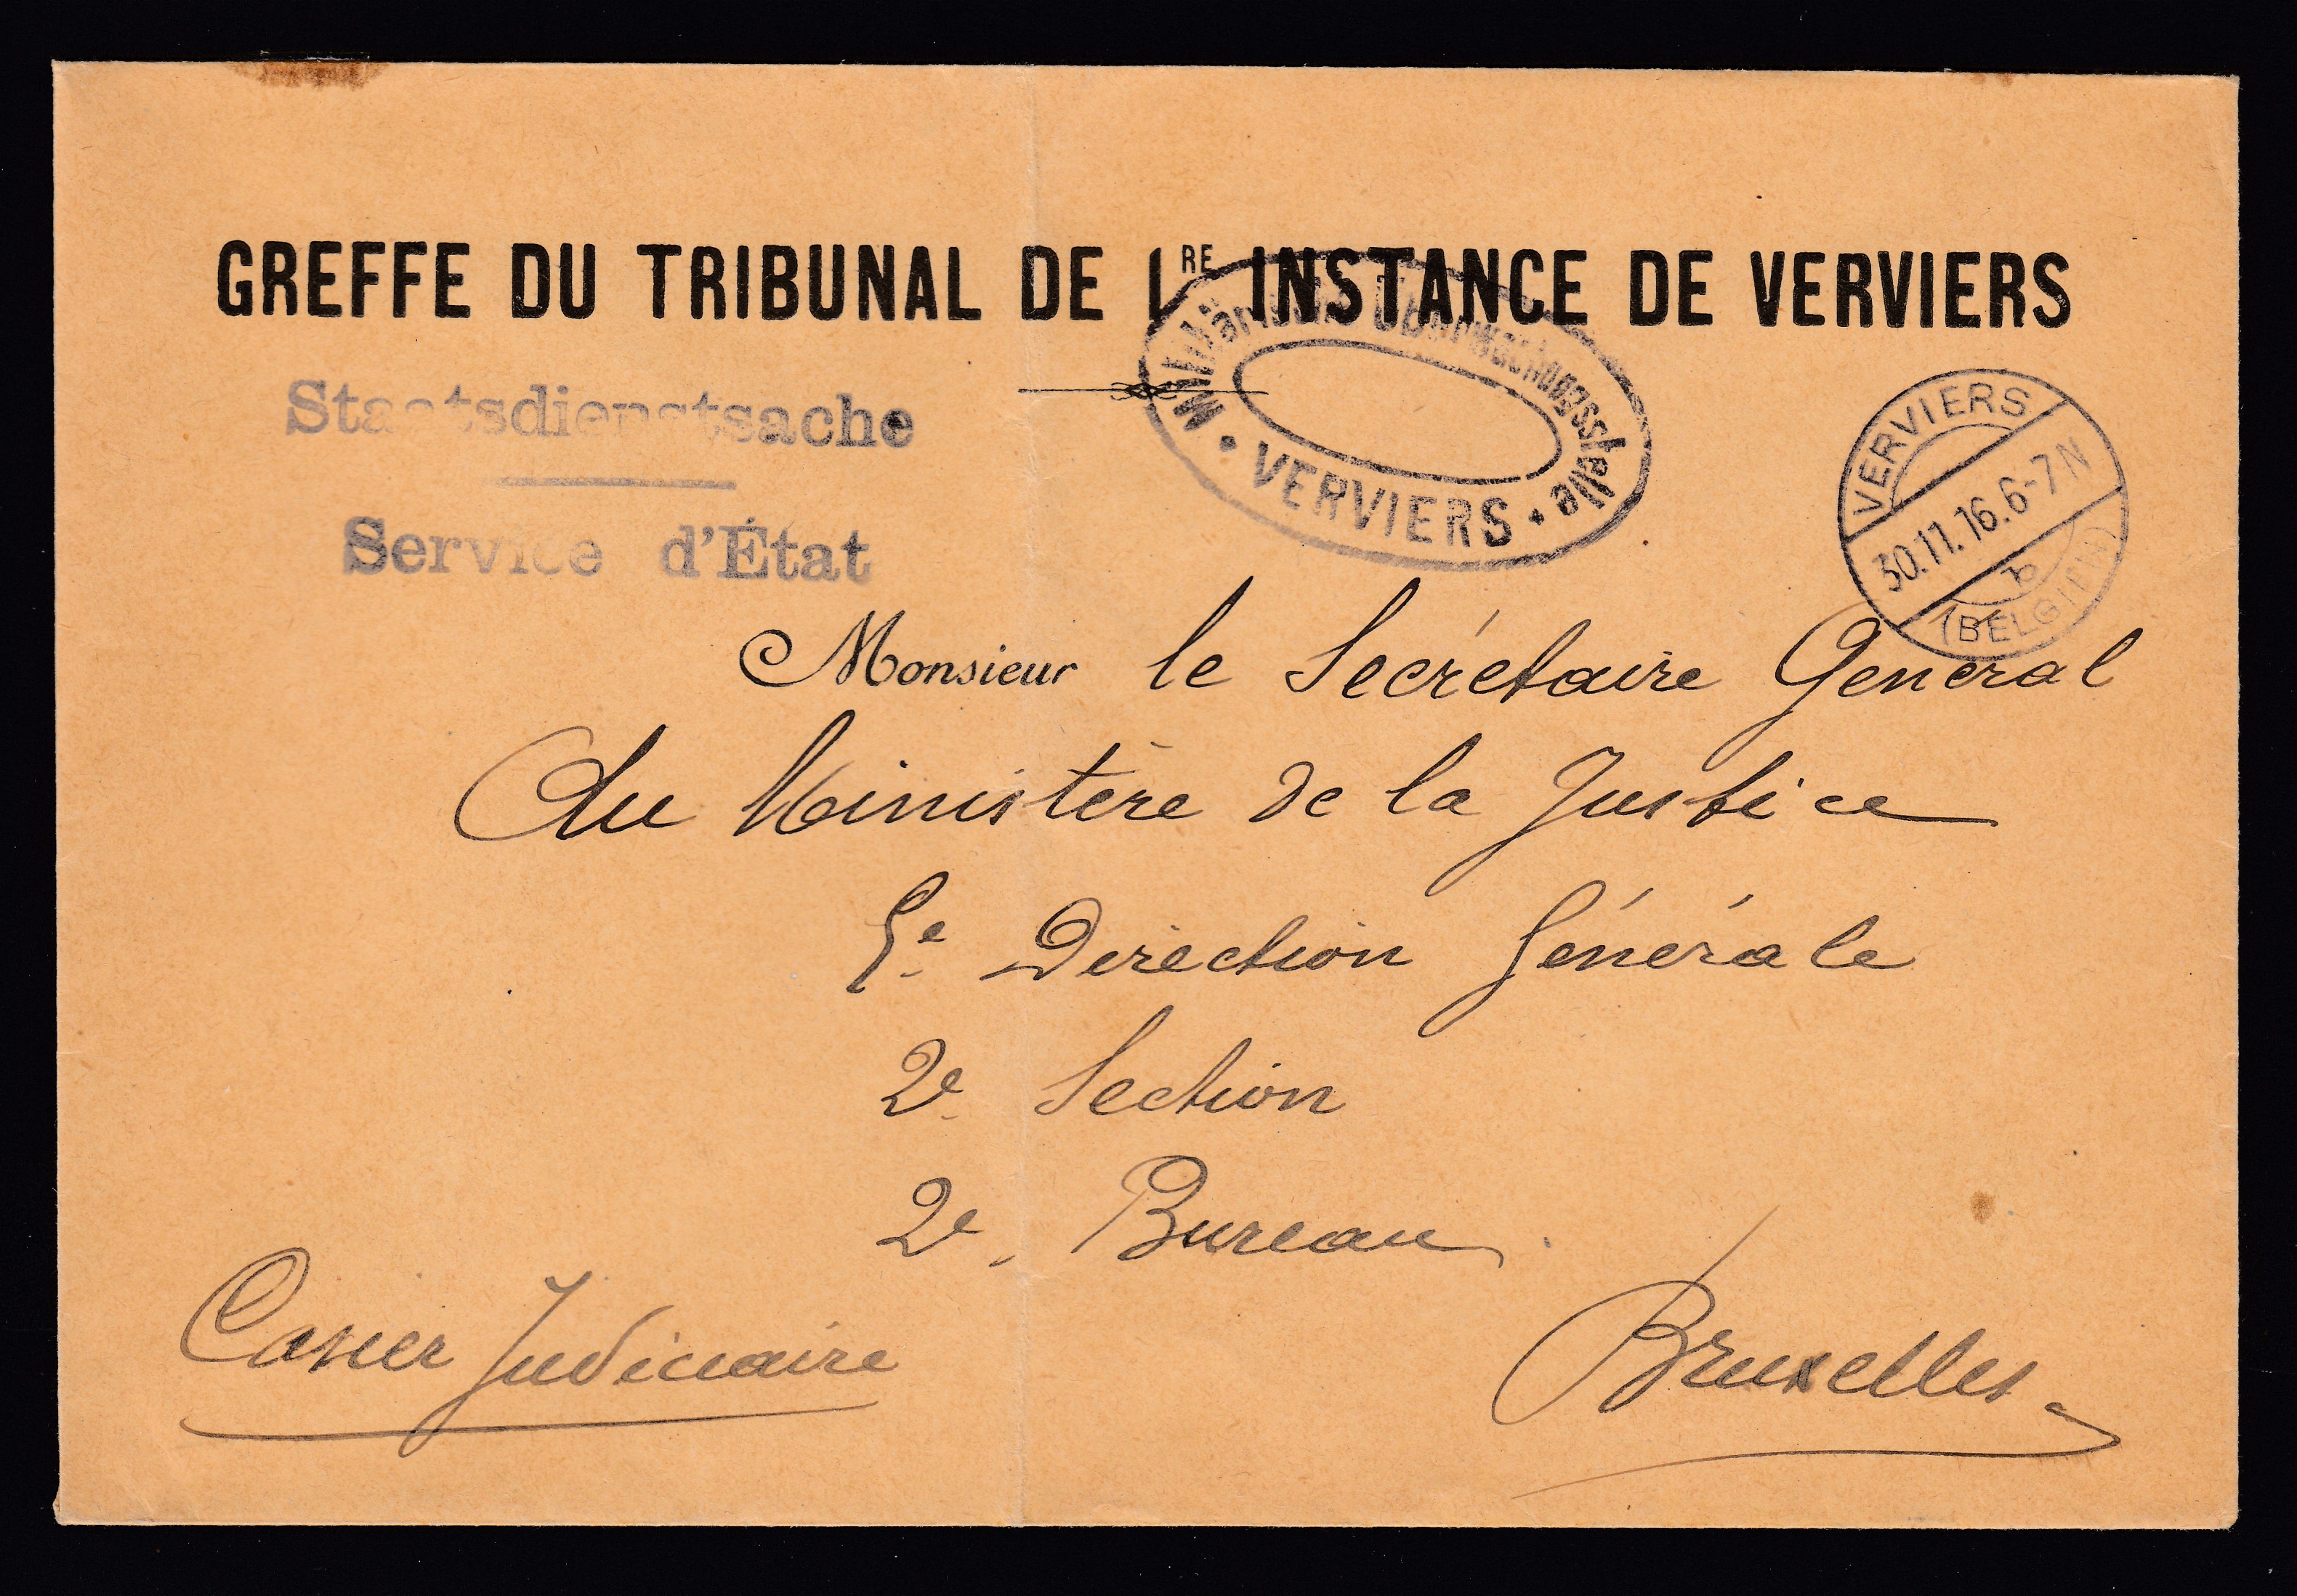 GREFFE DU TRIBUNAL DE 1RE INSTANCE DE VERVIERS
Staatsdienstsache
Service d'État
Militärische Überwachungsstelle
• VERVIERS •
VERVIERS
30.11.16.6-7N
b
(BELGIEN)
Monsieur le Secrétaire General
du Ministère de la Justice
Direction Générale
2e Section
2e Bureau
Casier Judiciaire
Bruxelles